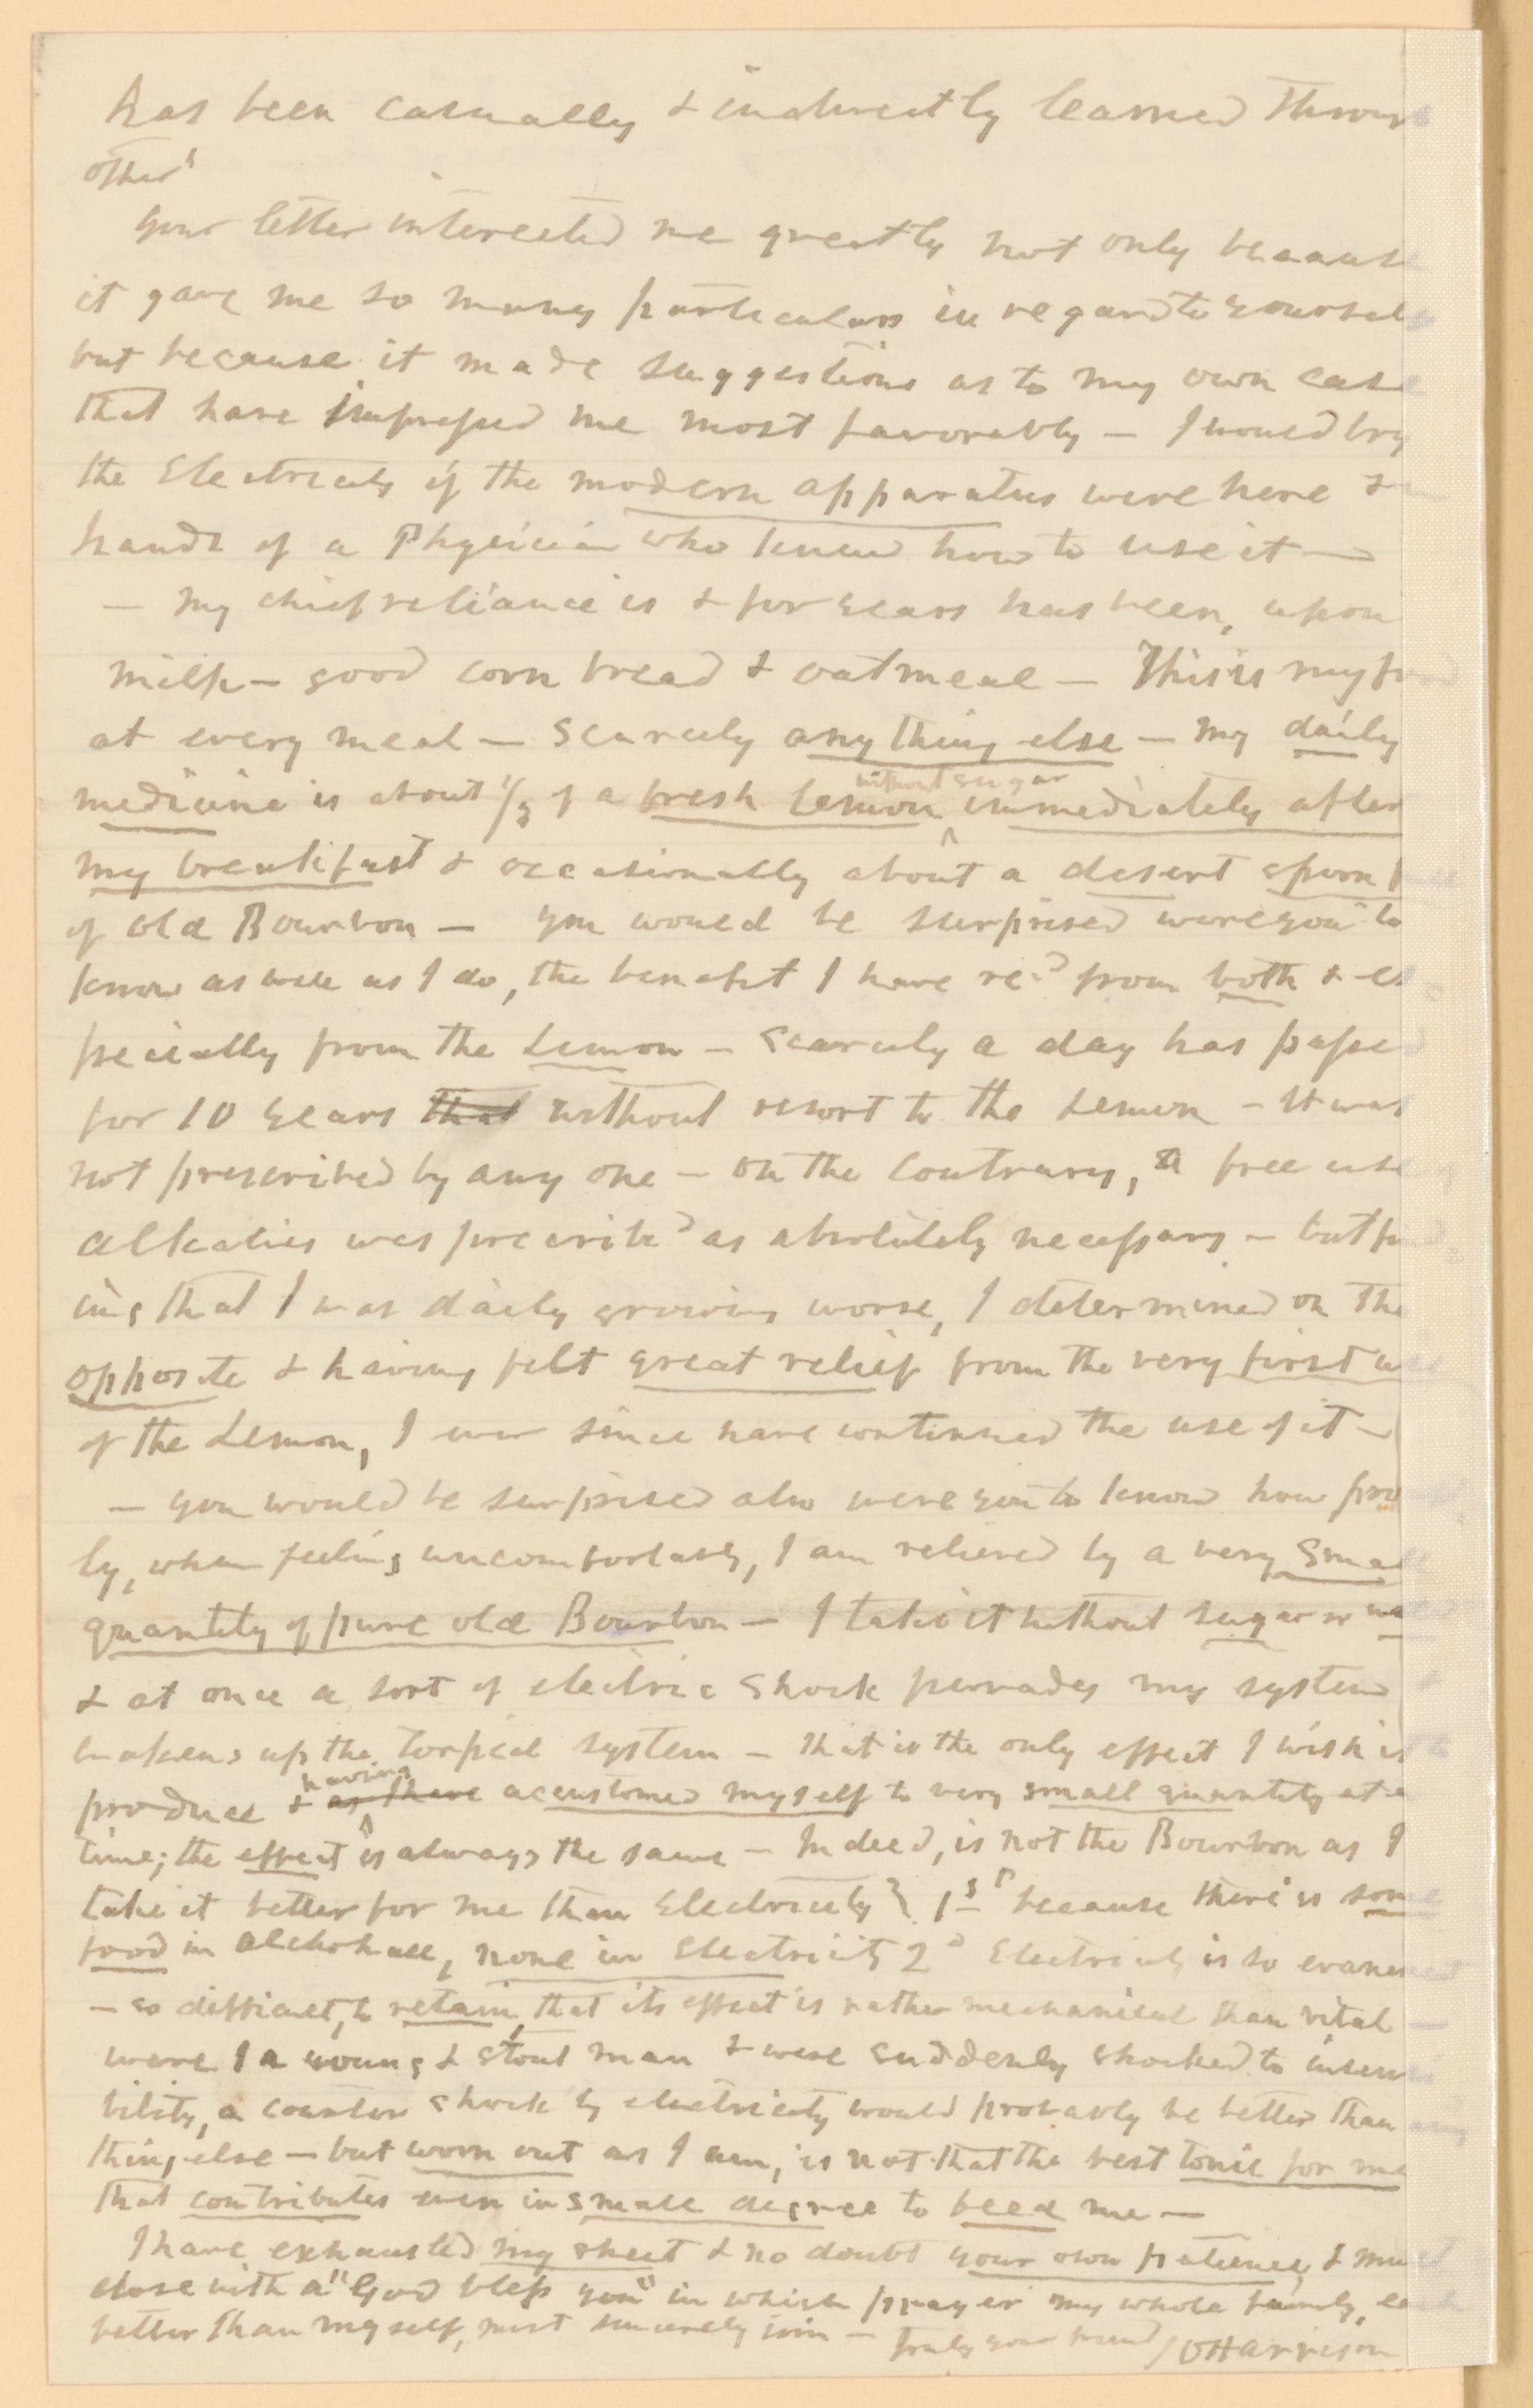 has been casually & indirectly learned through
others
Your letter interested me greatly not only because
it gave me so many particulars in regard to yourself
but because it made suggestions as to my own case
that have impressed me most favorably — I would try
the Electricity if the modern apparatus were here &
hands of a Physician who knew how to use it —
— My chief reliance is & for years has been, upon
milk — good corn bread & oatmeal — This is my food
at every meal — scarcely any thing else — My daily
medicine is about 1/3 of a fresh Lemon without sugar immediately after
my breakfast & occasionally about a desert spoon full
of old Bourbon — You would be surprised were you to
know as well as I do, the benefit I have recd from both & es
pecially from the Lemon — Scarcely a day has passed
for 10 years that without resort to the Lemon — It was
not prescribed by any one — on the contrary, a free use
alkalies was prescribd as absolutely necessary — but find
ing that I was daily growing worse, I determined on the
opposite & having felt great relief from the very first use
of the Lemon, I ever since have continued the use of it —
— You would be surprised also were you to know how
ly, when feeling uncomfortably, I am relieved by a very small
quantity of pure old Bourbon — I take it without sugar or
& at once a sort of electric shock pervades my system
wakens up the torpid system — that is the only effect I wish it to
produce & as I have having accustomed myself to very small quantity at a
time; the effect is always the same — Indeed, is not the Bourbon as I
take it better for me than Electricity } 1st because there is some
food in alchohall, none in Electricity 2d Electricity is so evanescent
— so difficult, to retain, that its effect is rather mechanical than vital —
were I a young & stout man & were suddenly shocked to insensi
bility, a counter shock by electricity would probably be better than any
thing else — but worn out as I am, is not that the best tonic for me
that contributes even in small degree to feed me —
I have exhausted my sheet & no doubt your own patience, & must
close with a "God bless you" in which prayer my whole family, each
better than myself, most sincerely join — Truly your friend J O Harrison